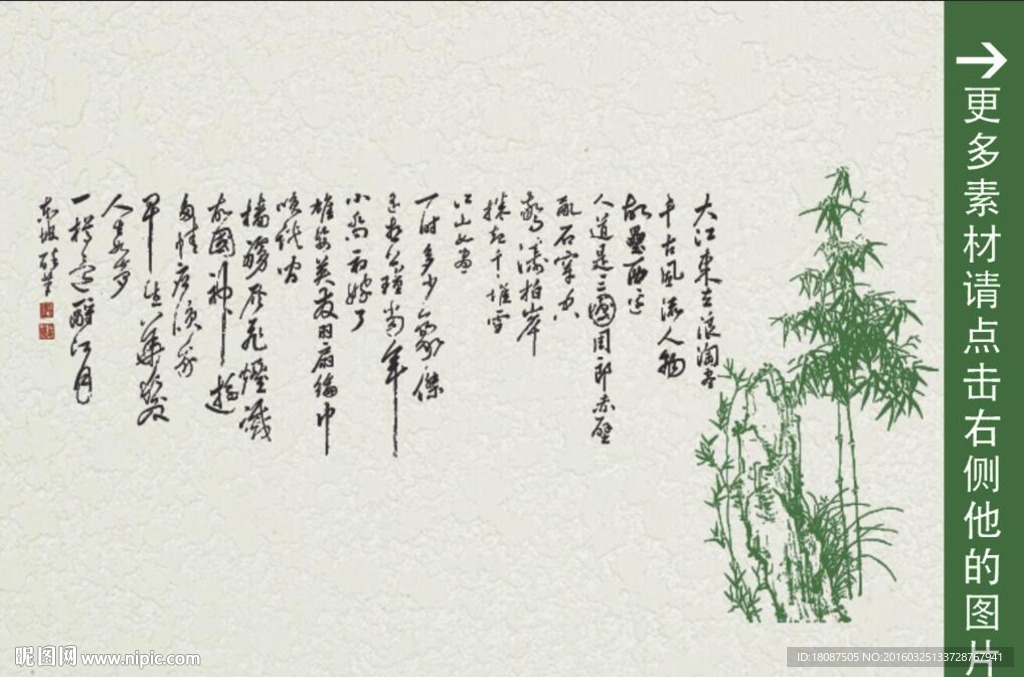 →更多素材请点击右侧他的图片
大江東去浪淘尽
千古風流人物
故壘西边
人道是三國周郎赤壁
乱石穿空
驚濤拍岸
捲起千堆雪
江山如畫
一时多少豪傑
遥想公瑾当年
小喬初嫁了
雄姿英发羽扇綸巾
灰飞煙滅
故國神遊
多情应笑我
早生華髮
人生如梦
一樽还酹江月
东坡
昵图网 www.nipic.com
ID:18087505 NO:20160325133728767941